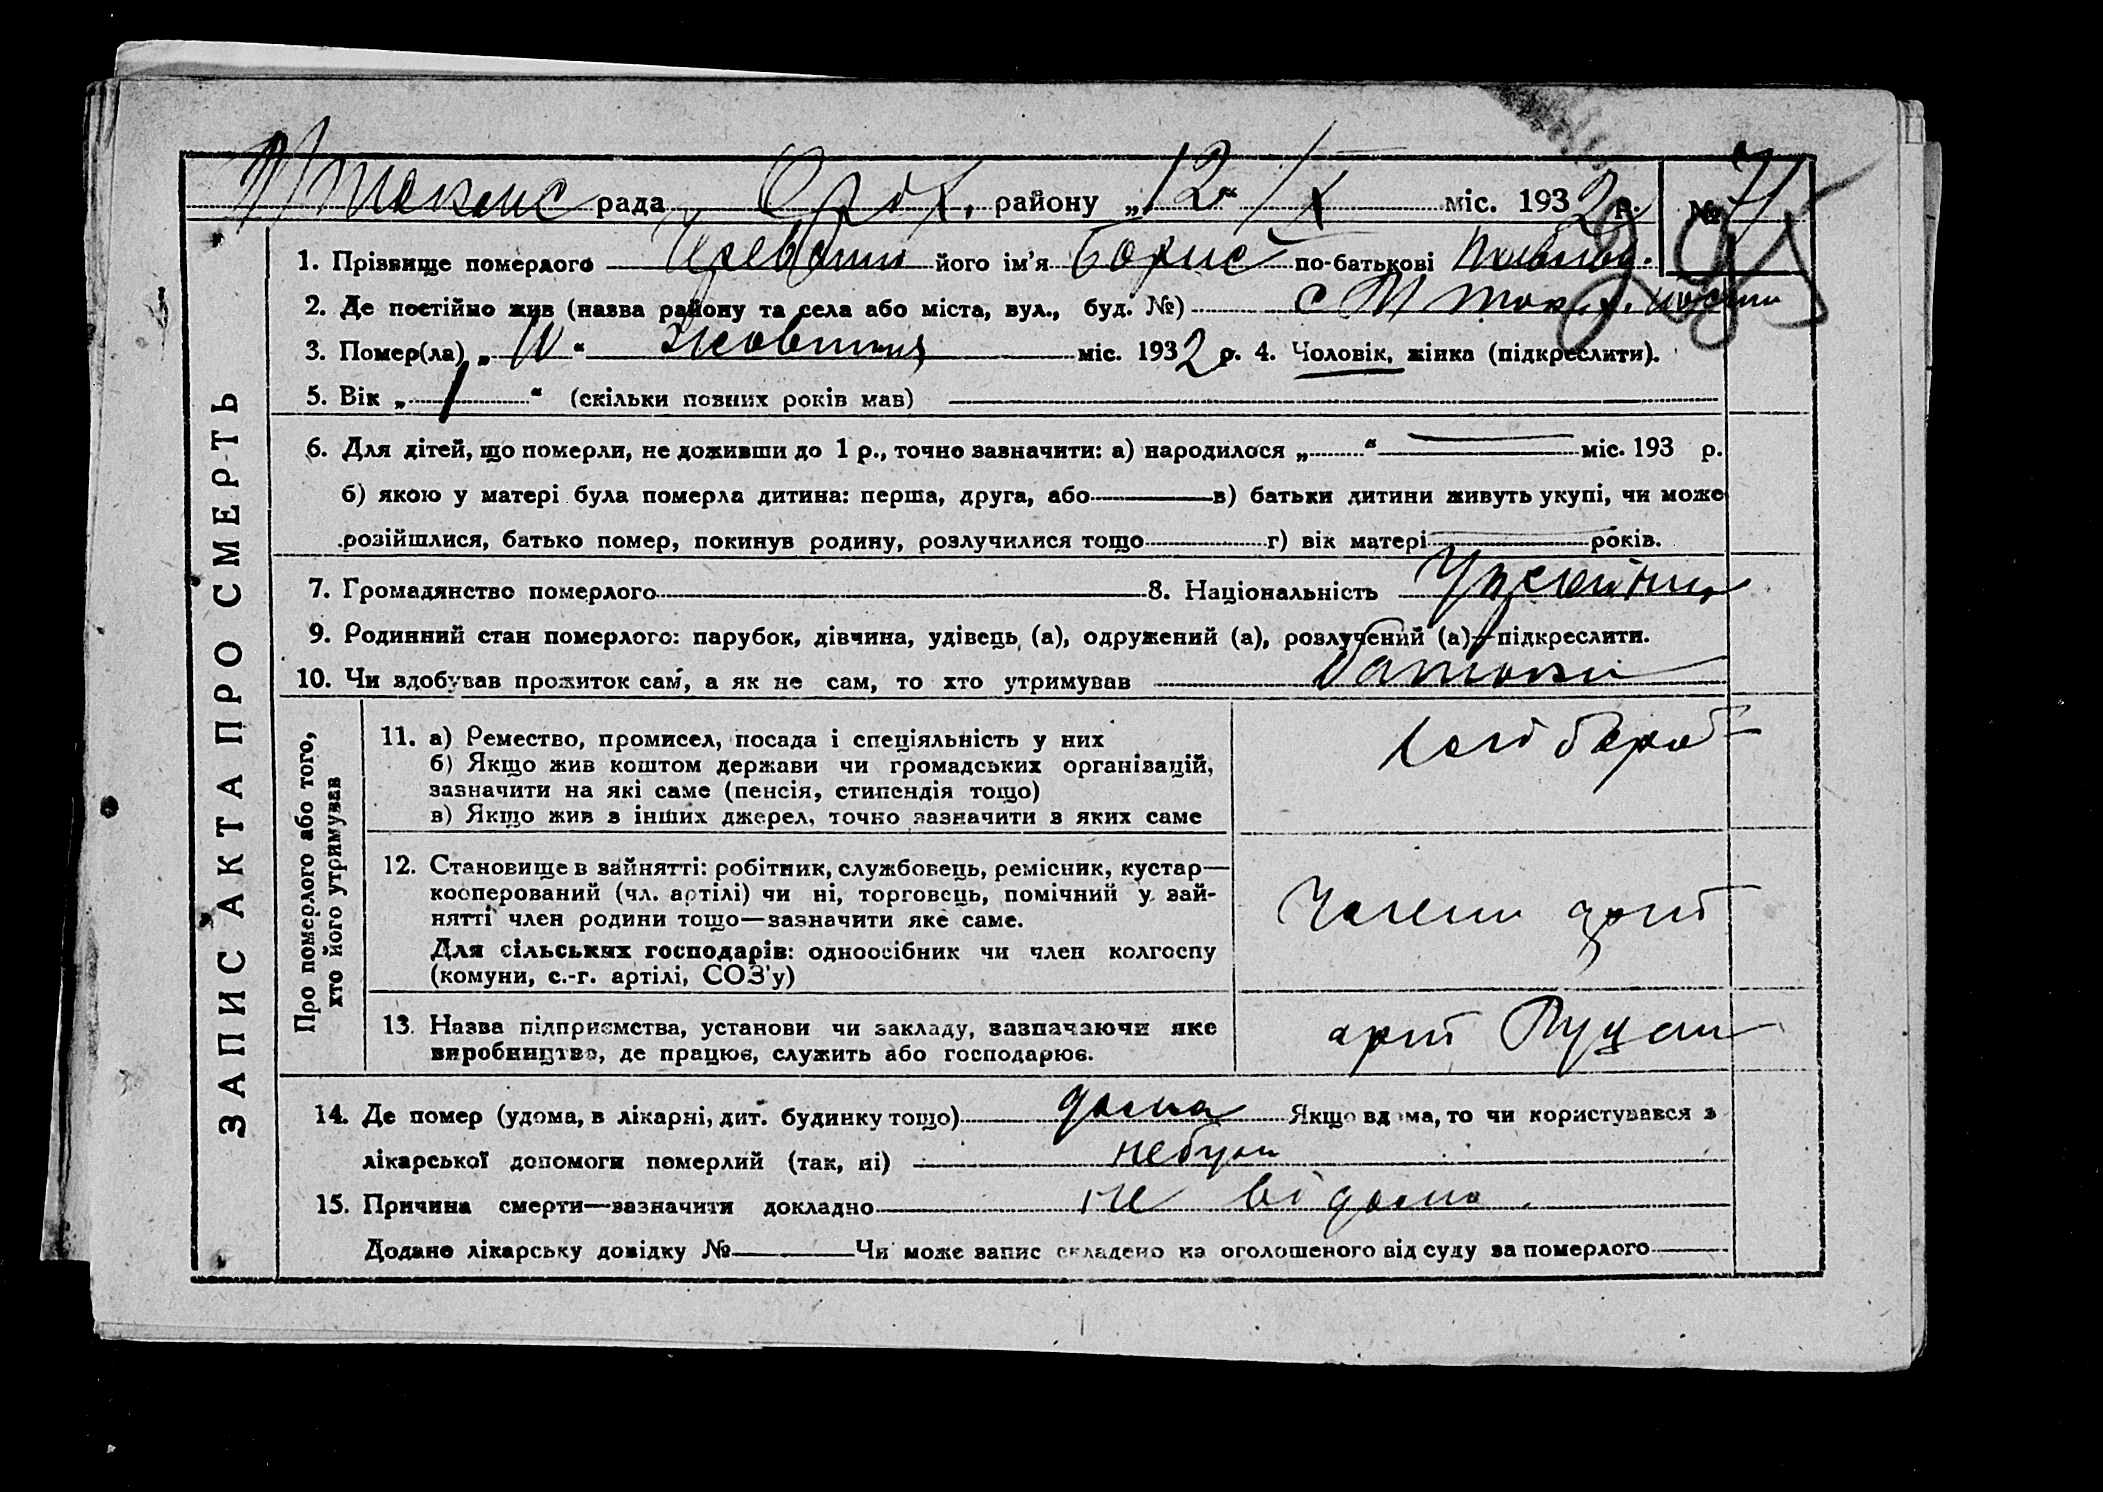 рада району „12“ IX міс. 1932 р. № 71
295
ЗАПИС АКТА ПРО СМЕРТЬ
1. Прізвище померлого його ім'я Борис по-батькові
2. Де постійно жив (назва району та села або міста, вул., буд. №) с
3. Помер(ла) „ “ міс. 1932 р. 4. Чоловік, жінка (підкреслити).
5. Вік „ 1 “ (скільки повних років мав)
6. Для дітей, що померли, не доживши до 1 р., точно зазначити: а) народилося „ “ міс. 193 р.
б) якою у матері була померла дитина: перша, друга, або в) батьки дитини живуть укупі, чи може
розійшлися, батько помер, покинув родину, розлучилися тощо г) вік матері років.
7. Громадянство померлого 8. Національність
9. Родинний стан померлого: парубок, дівчина, удівець (а), одружений (а), розлучений (а)—підкреслити.
10. Чи здобував прожиток сам, а як не сам, то хто утримував батьки
Про померлого або того,
хто його утримував
11. а) Ремество, промисел, посада і спеціяльність у них
б) Якщо жив коштом держави чи громадських організацій,
зазначити на які саме (пенсія, стипендія тощо)
в) Якщо жив з інших джерел, точно зазначити з яких саме
12. Становище в зайнятті: робітник, службовець, ремісник, кустар—
кооперований (чл. артілі) чи ні, торговець, помічний у зай-
нятті член родини тощо—зазначити яке саме.
Для сільських господарів: одноосібник чи член колгоспу
(комуни, с.-г. артілі, СОЗ'у)
Член арт
13. Назва підприємства, установи чи закладу, зазначаючи яке
виробництво, де працює, служить або господарює.
арт
14. Де помер (удома, в лікарні, дит. будинку тощо) дома Якщо вдома, то чи користувався з
лікарської допомоги померлий (так, ні)
15. Причина смерти—зазначити докладно не відома.
Додано лікарську довідку № Чи може запис складено на оголошеного від суду за померлого